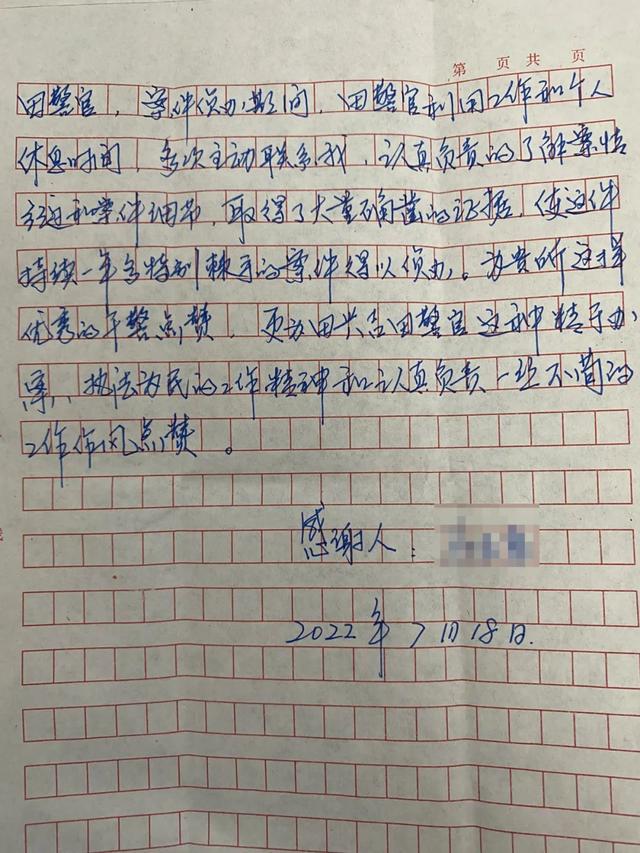 第 页 共 页
田警官，案件侦办期间，田警官利用工作和个人
休息时间，多次主动联系我，认真负责的了解案情
经过和案件细节，取得了大量确凿的证据，使这件
持续一年多特别棘手的案件得以侦办。为贵所这样
优秀的干警点赞，更为田兴吉田警官这种精于办
案，执法为民的工作精神和认真负责一丝不苟的
工作作风点赞。
感谢人：
2022年7月18日.